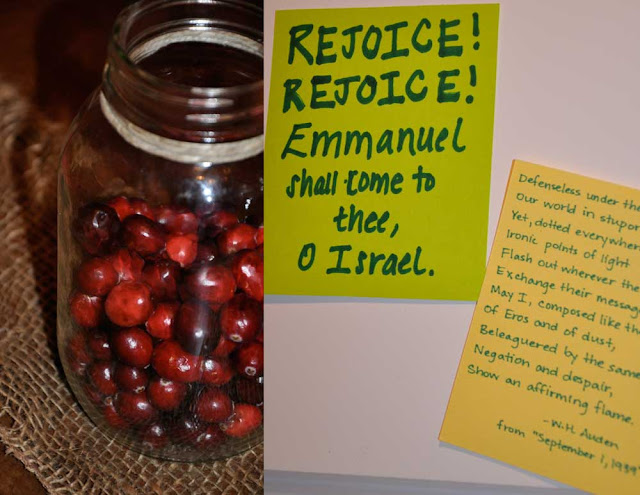 REJOICE!
REJOICE!
Emmanuel
shall come to
thee,
O Israel.
Defenseless under the
Our world in stupor
Yet, dotted everywhere
Ironic points of light
Flash out wherever the
Exchange their message
May I, composed like the
of Eros and of dust,
Beleaguered by the same
Negation and despair,
Show an affirming flame.
-W.H. Auden
from "September 1, 1939"